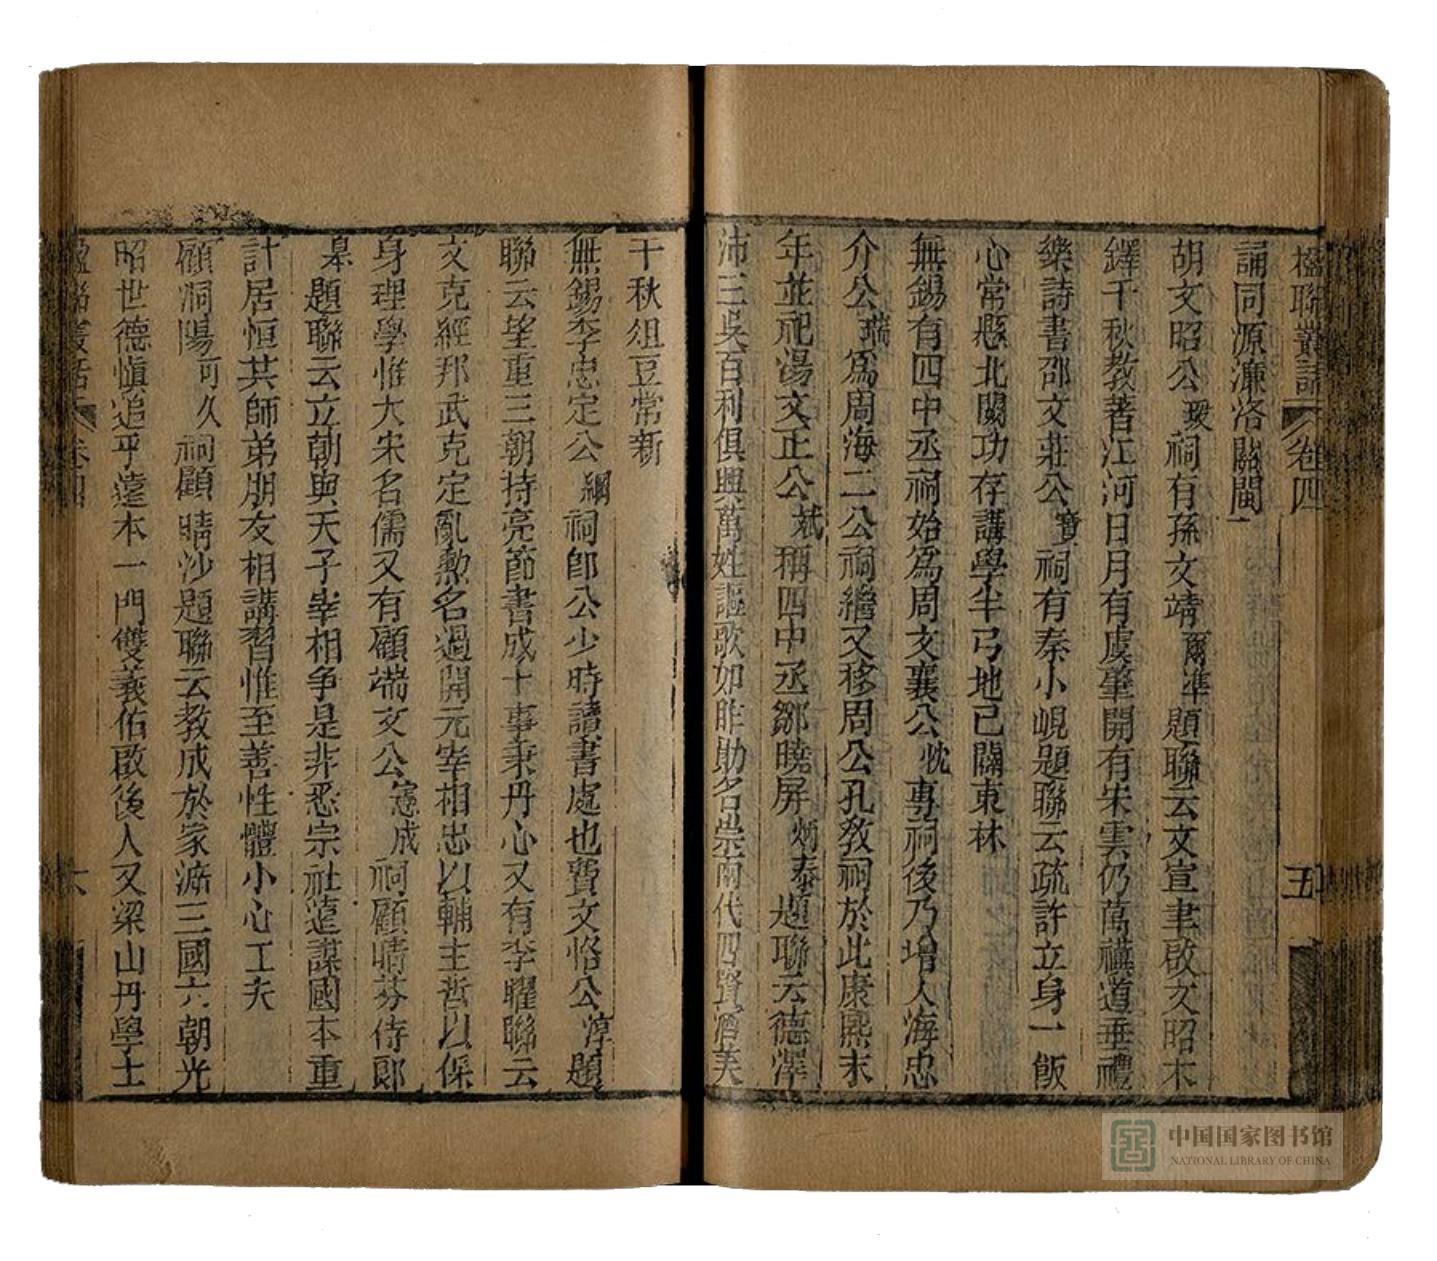 楹聯叢話 卷四 五
誦同源濂洛關閩一
胡文昭公瑗祠有孫文靖爾準題聯云文宣聿啟文昭木
鐸千秋教著江河日月有虞肇開有宋雲仍萬禩道垂禮
樂詩書邵文莊公寶祠有秦小峴題聯云疏許立身一飯
心常懸北闕功存講學半弓地已闢東林
無錫有四中丞祠始爲周文襄公忱專祠後乃增入海忠
介公瑞爲周海二公祠繼又移周公孔教祠於此康熙末
年並祀湯文正公斌稱四中丞鄒曉屏炳泰題聯云德澤
沛三吳百利俱興萬姓謳歌如昨勛名崇兩代四賢酒美
千秋俎豆常新
無錫李忠定公綱祠卽公少時讀書處也費文恪公淳題
聯云望重三朝持亮節書成十事秉丹心又有李曜聯云
文克經邦武克定亂勲名過開元宰相忠以輔主哲以保
身理學惟大宋名儒又有顧端文公憲成祠顧晴芬侍郎
皋題聯云立朝與天子宰相争是非悉宗社遠謀國本重
計居恒其師弟朋友相講習惟至善性體小心工夫
顧洞陽可久祠顧晴沙題聯云教成於家游三國六朝光
昭世德愼追乎遠本一門雙義佑啟後人又梁山丹學士
楹聯叢話 卷四 六
中国国家图书馆
NATIONAL LIBRARY OF CHINA